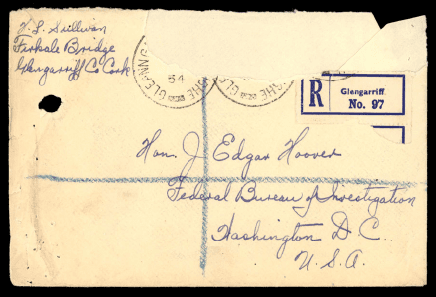 T. L. Sullivan
Firkale Bridge
Glengarriff Co Cork
54
R
Glengarriff
No. 97
Hon. J. Edgar Hoover
Federal Bureau of Investigation
Washington D C.
U. S. A.